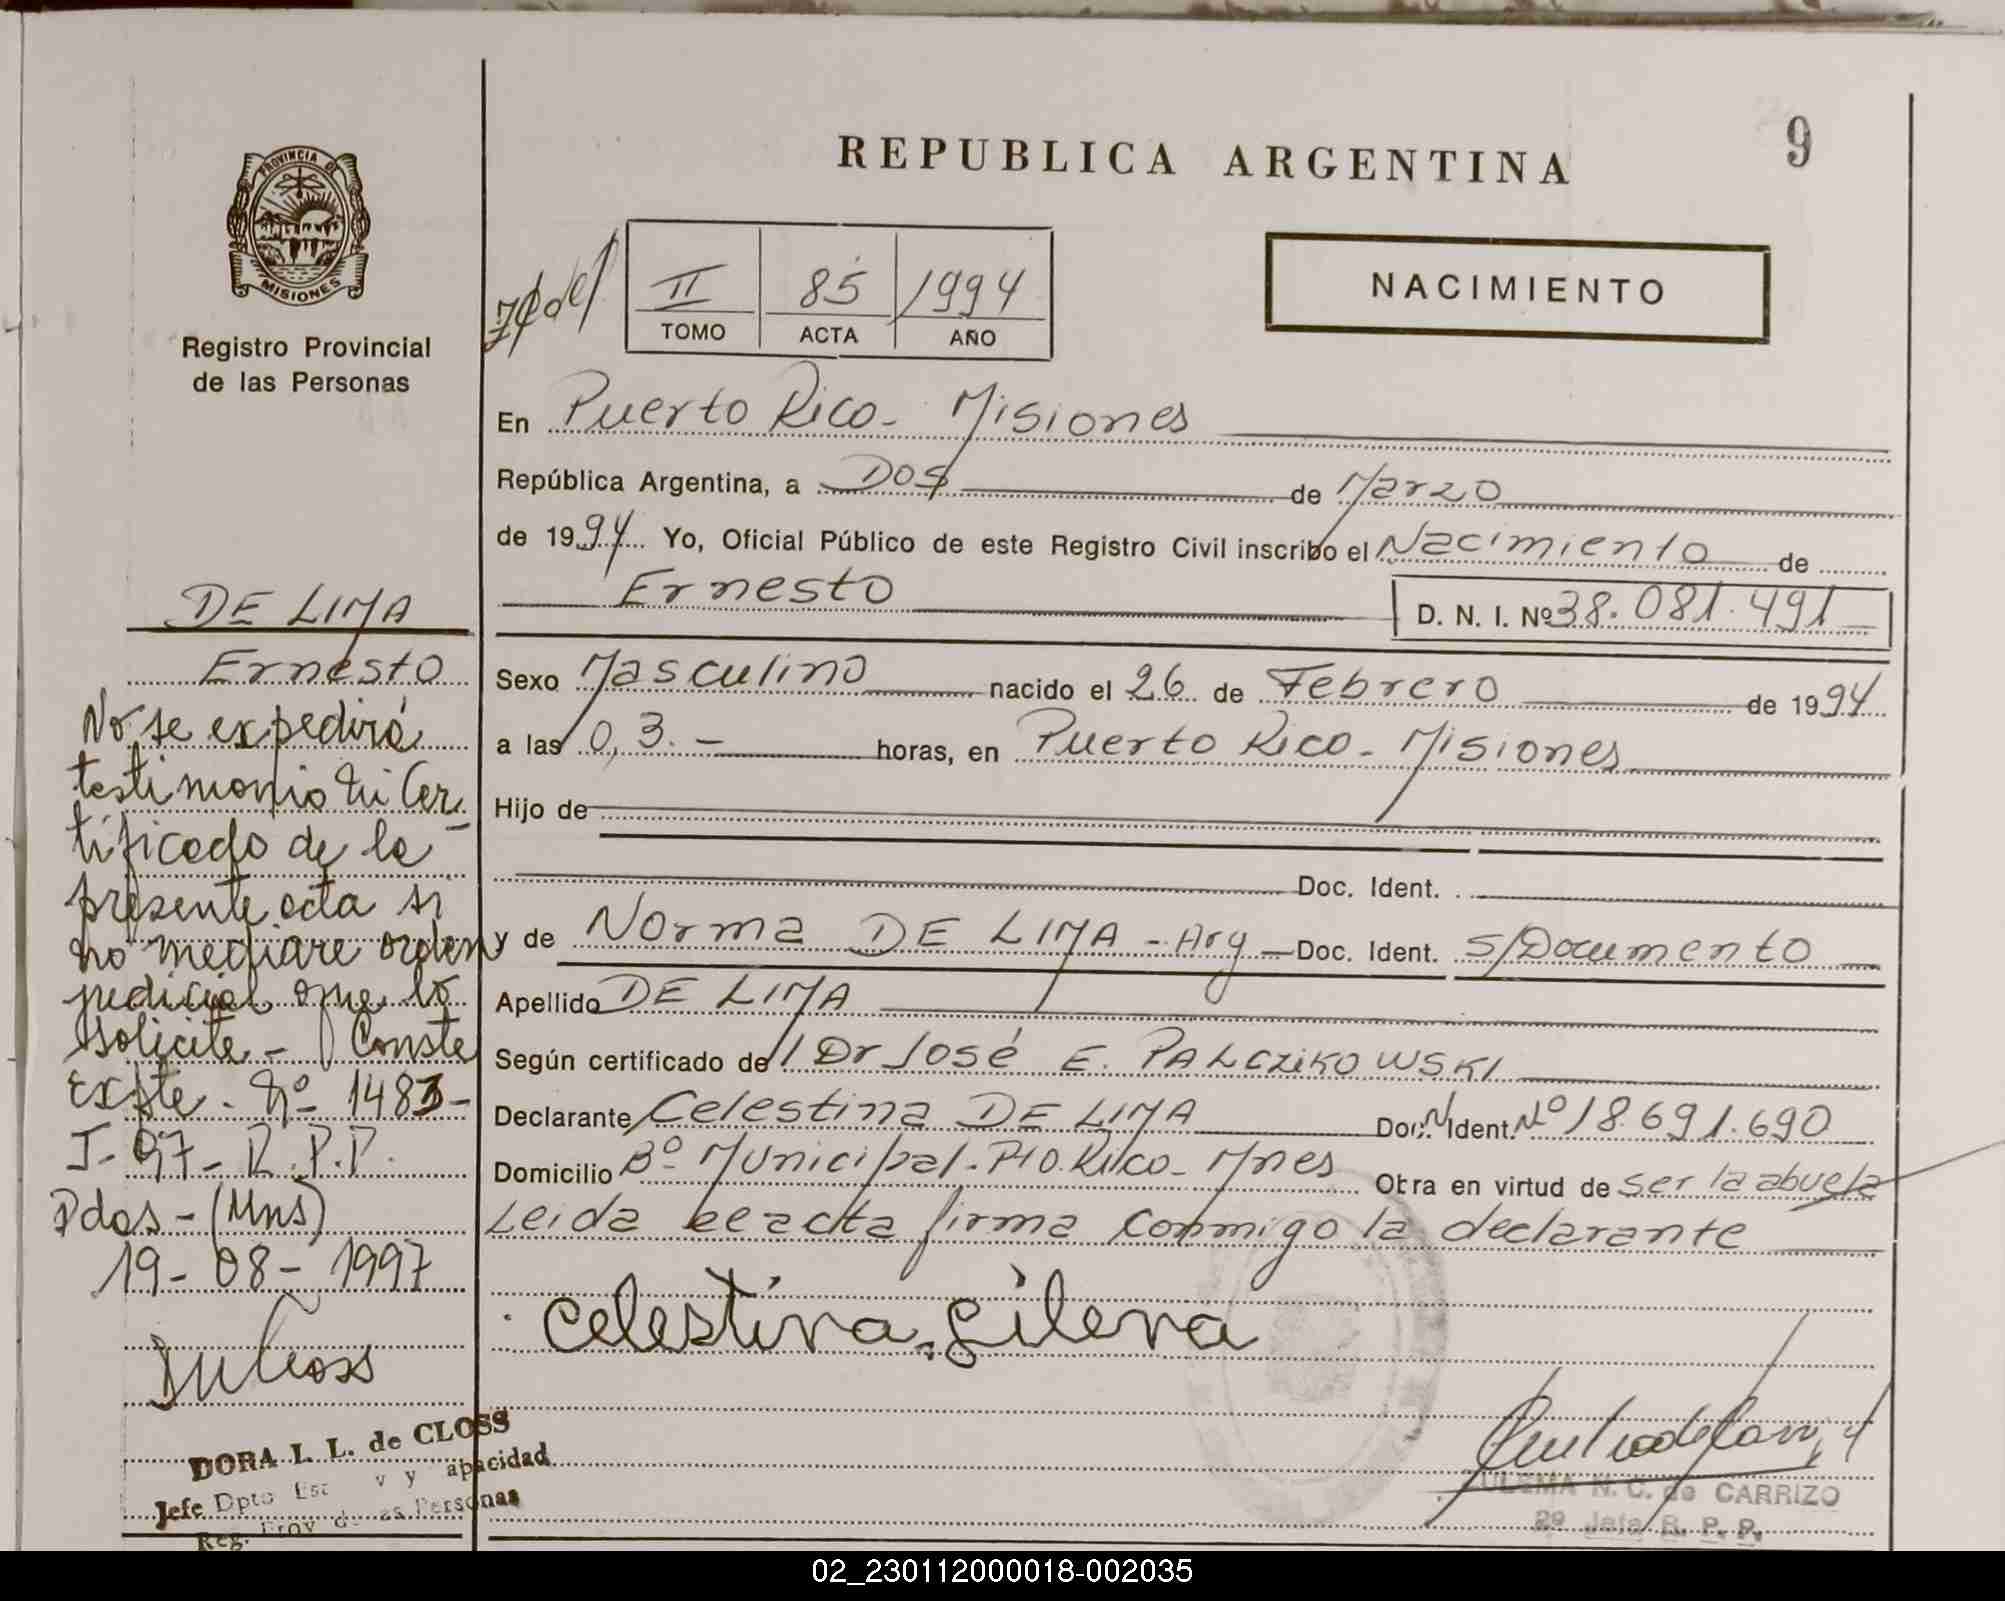 9
REPUBLICA ARGENTINA
PROVINCIA DE
MISIONES
Registro Provincial
de las Personas
II 85 1994
TOMO ACTA AÑO
NACIMIENTO
En Puerto Rico - Misiones
República Argentina, a DOS de Marzo
de 1994 Yo, Oficial Público de este Registro Civil inscribo el Nacimiento de
Ernesto D. N. I. Nº 38.081.491
Sexo Masculino nacido el 26 de Febrero de 1994
a las 0,3.- horas, en Puerto Rico - Misiones
Hijo de
Doc. Ident.
y de Norma DE LIMA - Arg - Doc. Ident. S/Documento
Apellido DE LIMA
Según certificado del Dr José E. PALCZIKOWSKI
Declarante Celestina DE LIMA Doc. Ident. Nº 18.691.690
Domicilio Bº Municipal - Pto. Rico - Mnes Obra en virtud de ser la abuela
Leida exacta firma conmigo la declarante
Celestina Silera
ULEMA N. C. de CARRIZO
2º Jefe R. P. P.
DE LIMA
Ernesto
No se expedirá
testimonio ni Cer-
tificado de la
presente acta si
no mediare orden
judicial que lo
solicite - Conste
Expte. Nº 1483-
J-97- R.P.P.
Pdas - (Mns)
19-08-1997
DORA I. L. de CLOSS
Jefe Dpto Est v y apacidad
Reg. Prov de as Personas
02_230112000018-002035